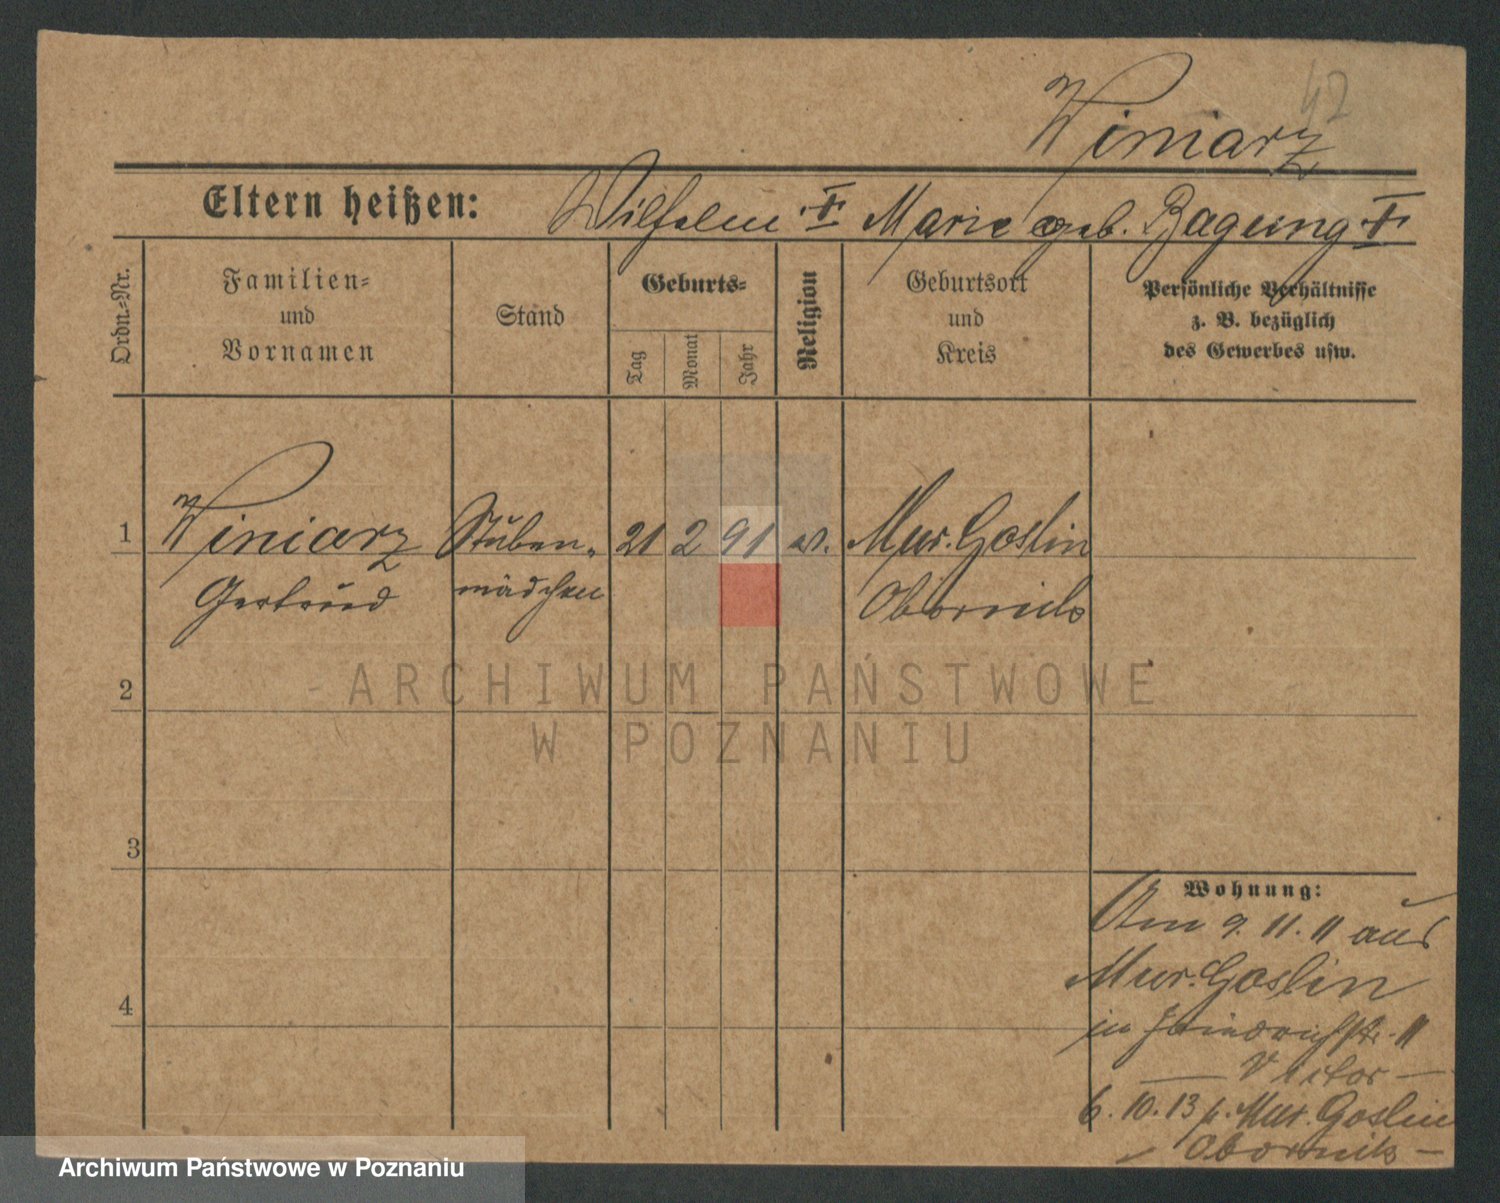 42
Winiarz
Eltern heißen: Wilhelm † Marie geb. Bagung †
Ordn.-Nr.
Familien- und Vornamen
Stand
Geburts-
Tag
Monat
Jahr
Religion
Geburtsort und Kreis
Persönliche Verhältnisse z. B. bezüglich des Gewerbes usw.
1 Winiarz Stuben- 21 2 91 ev. Mur. Goslin
Gertrud mädchen Obornik
2
3
4
Wohnung:
Am 9. 11. 11 aus
Mur. Goslin
in Friedrichstr. 11
6. 10. 13 Mur. Goslin
Obornik
ARCHIWUM PAŃSTWOWE
W POZNANIU
Archiwum Państwowe w Poznaniu